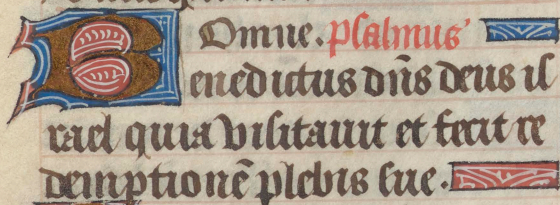 Domne. psalmus
Benedictus dn̄s deus is
rael quia visitauit et fecit re
demptionē plebis sue.